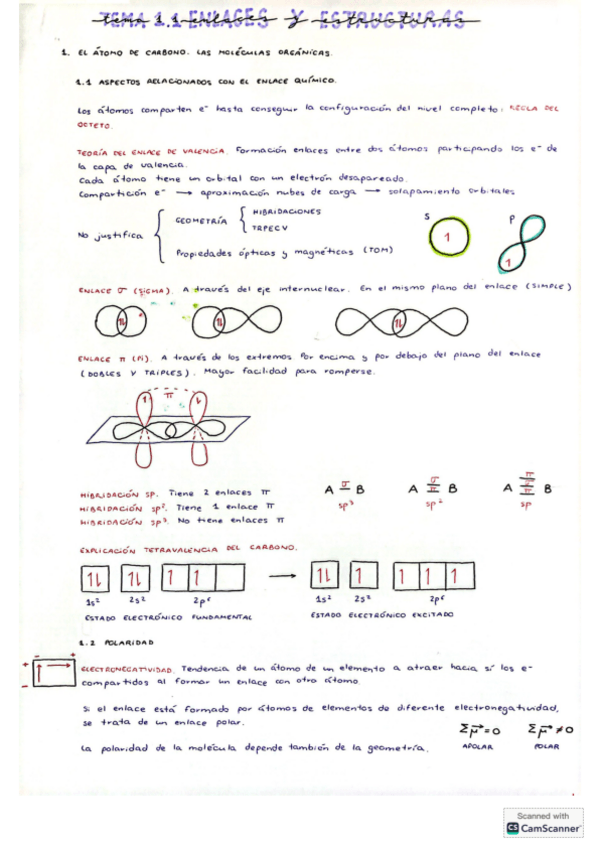 TEMA 1.1 ENLACES Y ESTRUCTURAS
1. EL ÁTOMO DE CARBONO. LAS MOLÉCULAS ORGÁNICAS.
1.1 ASPECTOS RELACIONADOS CON EL ENLACE QUÍMICO.
Los átomos comparten e⁻ hasta conseguir la configuración del nivel completo: REGLA DEL
OCTETO.
TEORÍA DEL ENLACE DE VALENCIA. Formación enlaces entre dos átomos participando los e⁻ de
la capa de valencia.
Cada átomo tiene un orbital con un electrón desapareado.
Compartición e⁻ → aproximación nubes de carga → solapamiento orbitales
No justifica
GEOMETRÍA
HIBRIDACIONES
TRPECV
Propiedades ópticas y magnéticas (TOM)
S
P
1
1
ENLACE σ (SIGMA). A través del eje internuclear. En el mismo plano del enlace (SIMPLE)
ENLACE π (Pi). A través de los extremos por encima y por debajo del plano del enlace
(DOBLES Y TRIPLES). Mayor facilidad para romperse.
π
HIBRIDACIÓN sp. Tiene 2 enlaces π
HIBRIDACIÓN sp². Tiene 1 enlace π
HIBRIDACIÓN sp³. No tiene enlaces π
A σ B
sp³
A σ π B
sp²
A π σ π B
sp
EXPLICACIÓN TETRAVALENCIA DEL CARBONO.
1s² 2s² 2p⁶
ESTADO ELECTRÓNICO FUNDAMENTAL
→
1s² 2s² 2p⁶
ESTADO ELECTRÓNICO EXCITADO
1.2 POLARIDAD
+ - + -
ELECTRONEGATIVIDAD. Tendencia de un átomo de un elemento a atraer hacia sí los e⁻
compartidos al formar un enlace con otro átomo.
Si el enlace está formado por átomos de elementos de diferente electronegatividad,
se trata de un enlace polar.
La polaridad de la molécula depende también de la geometría.
Σμ⃗ = 0
APOLAR
Σμ⃗ ≠ 0
POLAR
Scanned with
CS CamScanner